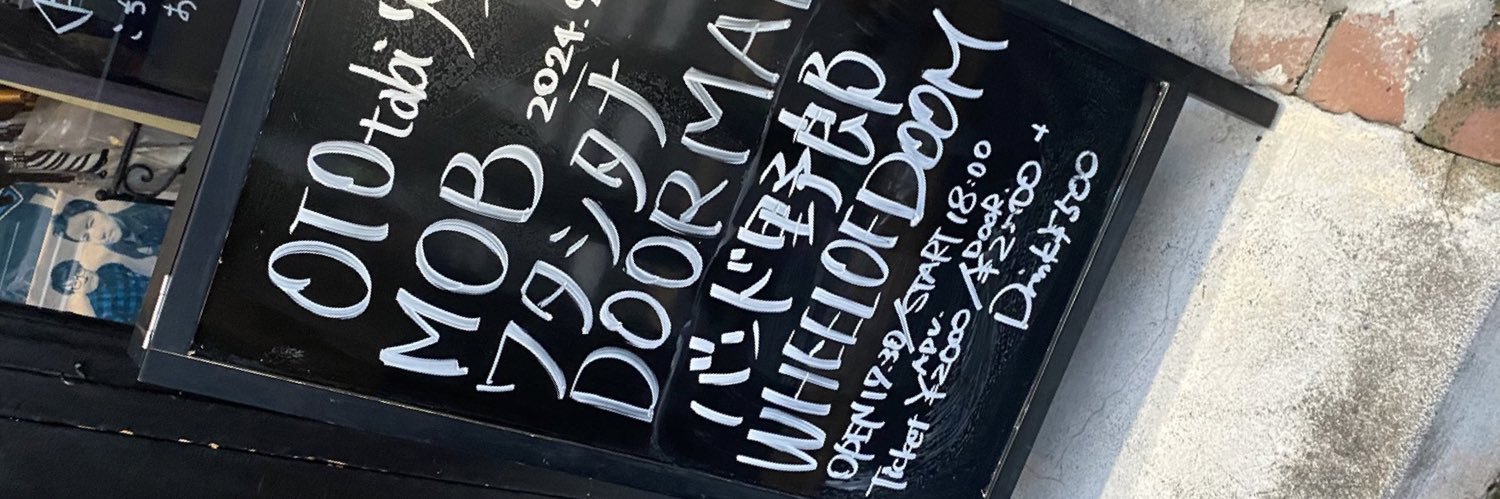 OTO-tabi
2024.9
MOB
ワタシタチ
DOORMAT
バンド野郎B
WHEELOFDOOM
OPEN17:30/START18:00
Ticket ¥ADV.2000/¥DOOR.2500+
Drink¥500